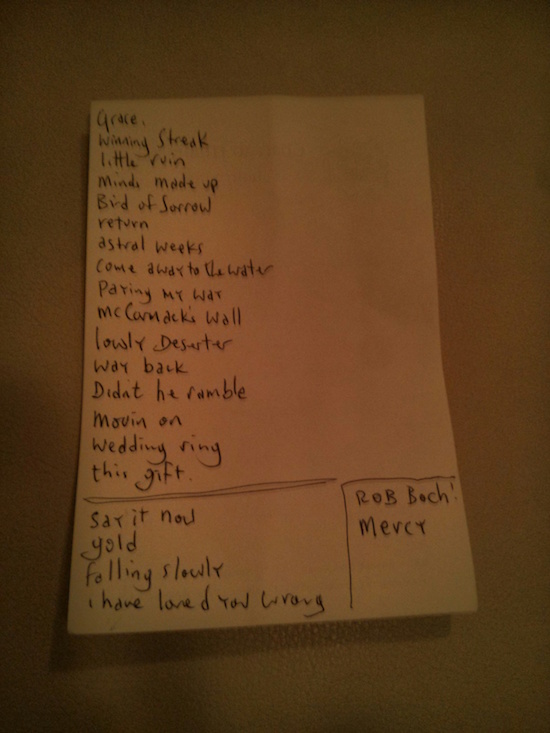 Grace.
Winning Streak
little ruin
Minds made up
Bird of Sorrow
return
astral weeks
Come away to the water
Paying my way
McCormack's Wall
lowly Deserter
way back
Didnt he ramble
Movin on
Wedding ring
this gift.
Say it now
gold
Falling slowly
i have loved you wrong
ROB Boch!
Mercy